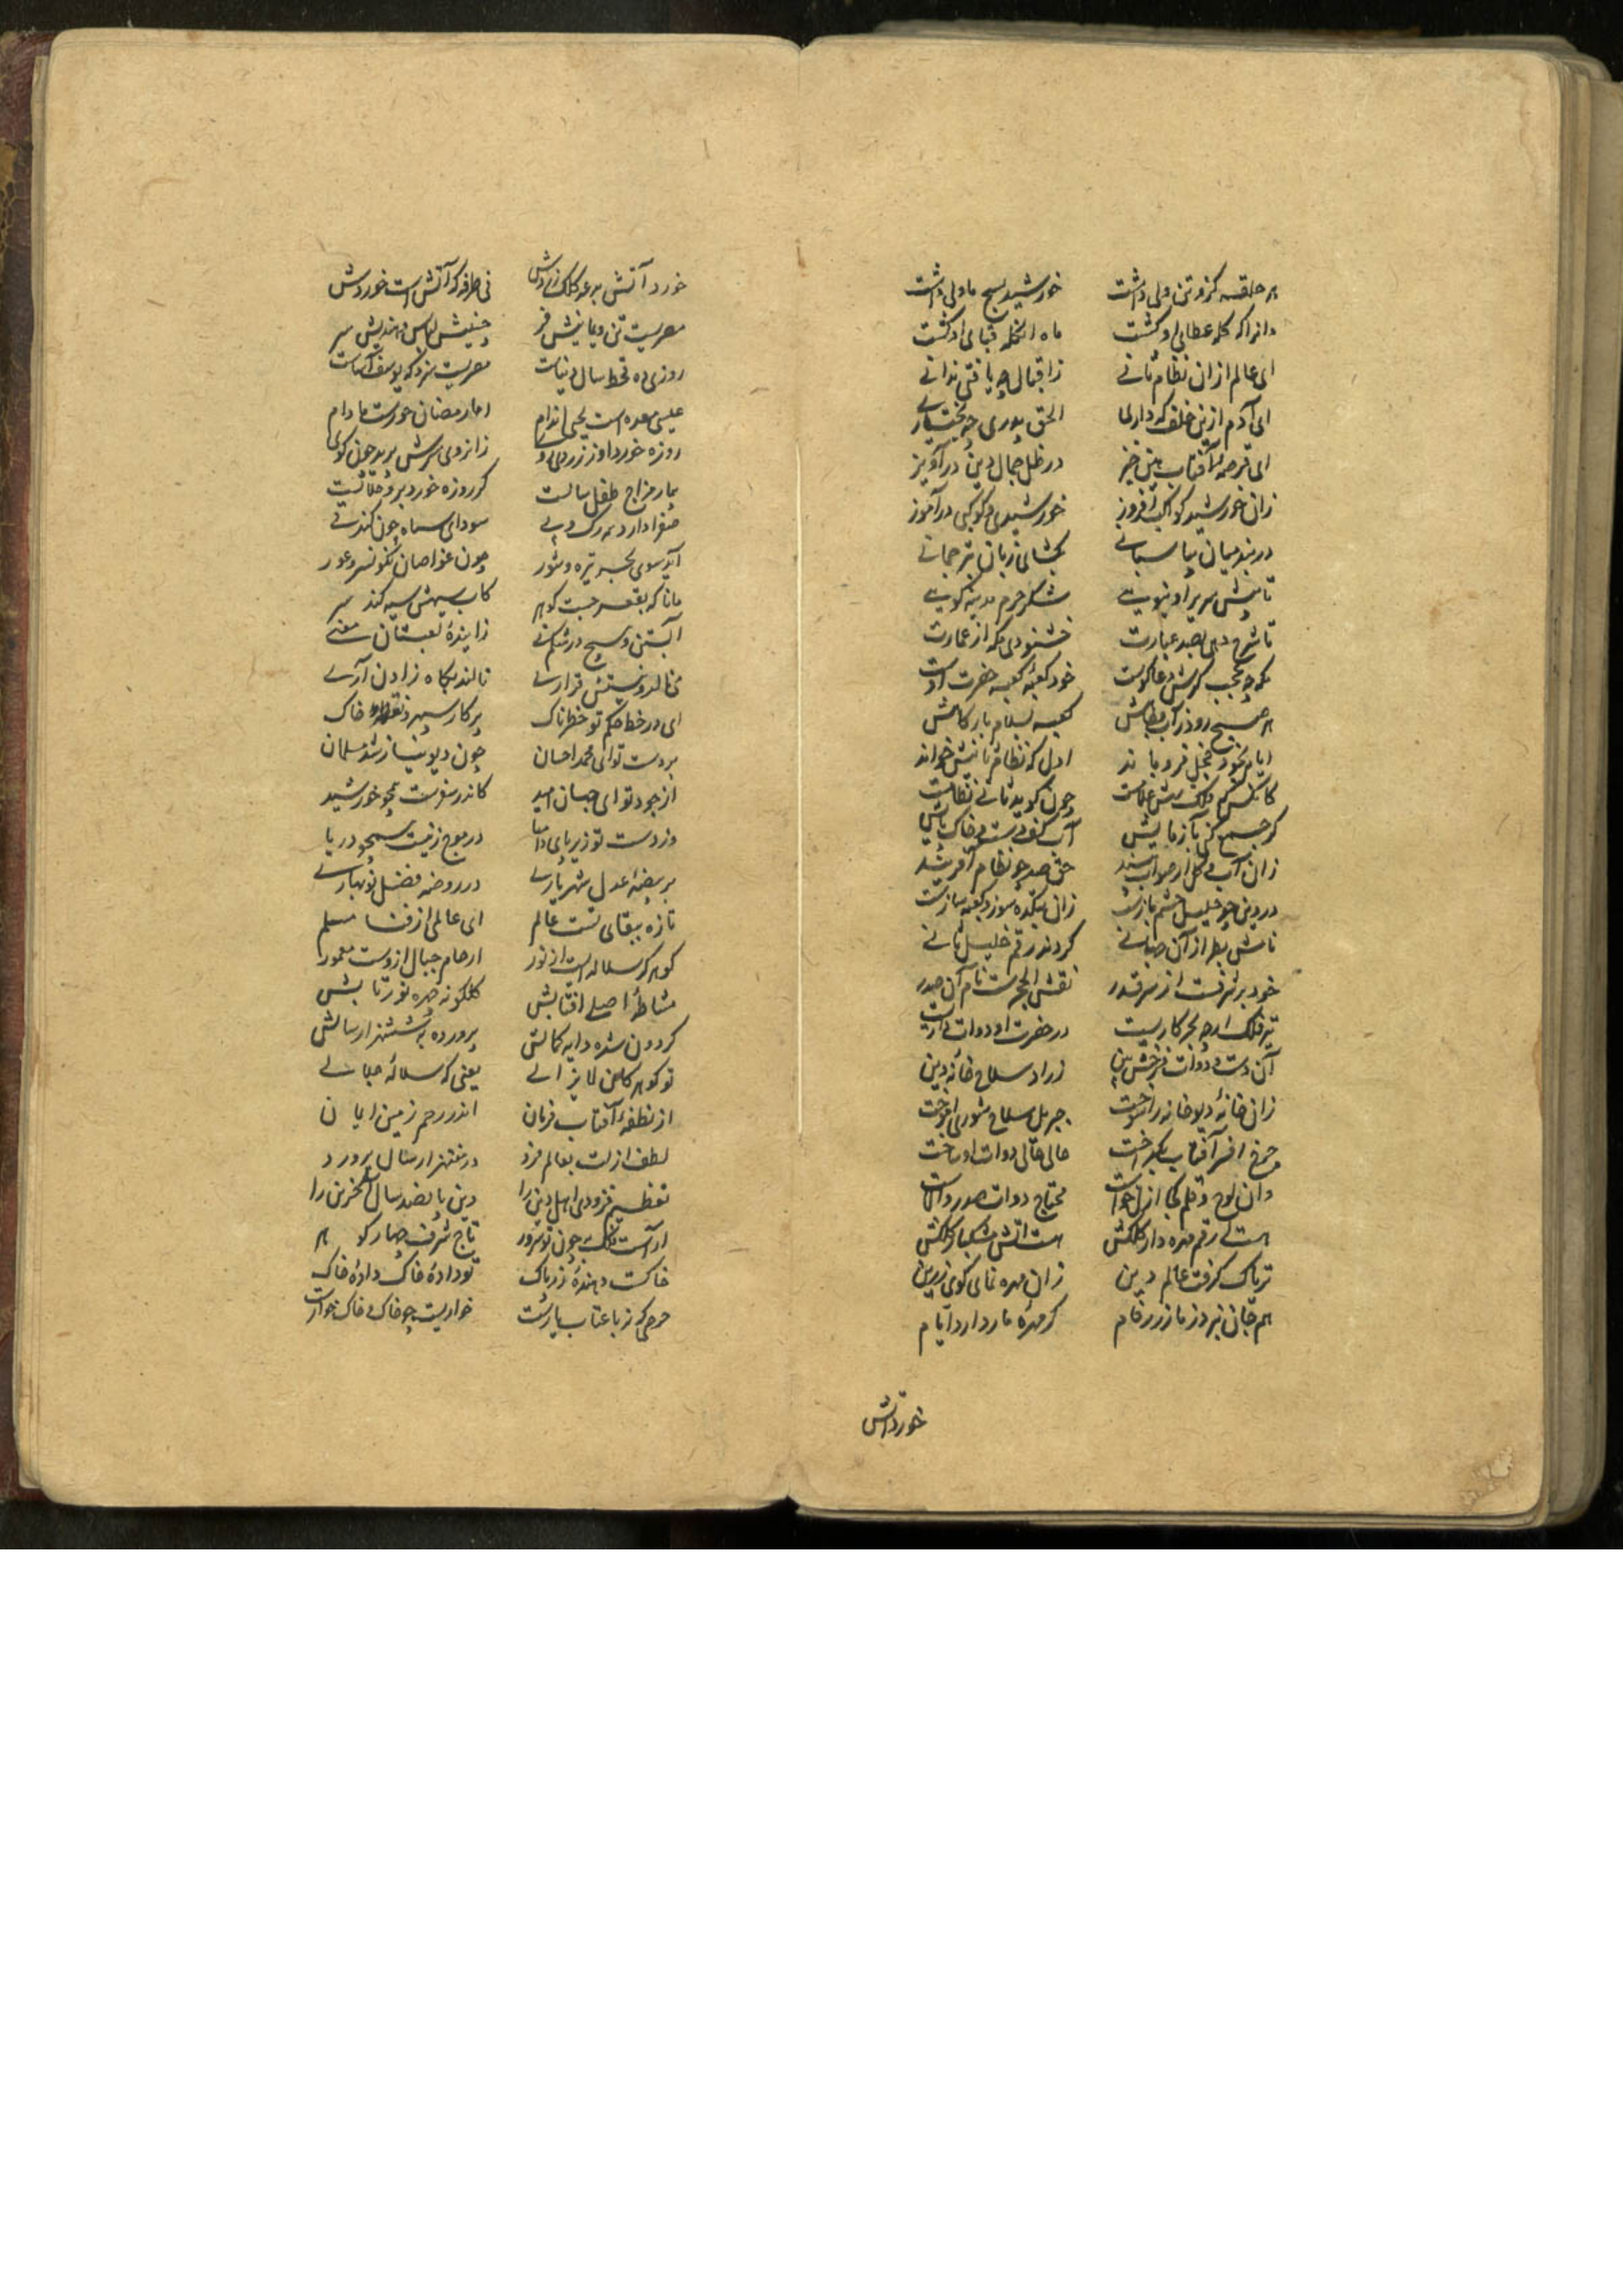 هر حلقه کزو تن ولی داشت خورشید مسیح ماولی داشت
دانرا که کله عطای او گشت ماه انگله قبای او گشت
ای عالم ازان نظام ثانی ز اقبال چه یافتی ندانی
ای آدم ازین خلف که داری الحق پدری چه بختیاری
ای قرصه آفتاب هین خیز در ظل جمال دین درآویز
زان خورشید کواکب افروز خورشیدی و کوکبی درآموز
در بند میان بپاسبانی بگشای زبان بترجمانی
تا پیش سریر او بنویی شکر حرم مدینه گویی
تا شرح دهی بصد عبارت خشنودی مکه از عمارت
مکه چه عجب گرش دعاگوست خود کعبه کعبه حضرت اوست
هر صبح رود ز آب کعبه بسلام بارگاهش
ایام بخود خجل فرو ماند اول که نظام ثانیش خواند
کانکس که فلک پیش غلامست چونش گویند ثانی نظامست
گر جسم کنی بازمایش آب کفی است خاک پایش
زان آب و گل از صواب حق صد چو نظام آفریند
در دین چو خلیل چشم بازست زان بتکده سوز و کعبه سازست
نامش بطراز آن جهانی کردند رقم خلیل ثانی
خود برشرفست از سر قدر نقش الحجرست نام آن صدر
تیر فلک ارچه بحر کاریست در حضرت او دوات داریست
آن دست و دوات فرخش بین زراد سلاح خانه دین
زان خانه دیو خانه را سوخت جبریل سلاح شوری آموخت
چرخ افسر آفتاب بگداخت حالی حالی دوات او ساخت
وان لوح و قلم کجا ازل خواست محتاج دوات صدر والاست
هست رقم مهره دار کلکش هست آتش مشکبار کلکش
تریاک گرفت عالم دین زان مهره نمای گوی زرین
هم جان نبرد ز مار زرفام گر مهره مار دارد ایام
خورد آتش
خورد آتش مر عدو کلک زردش نی طرفه کز آتش است خوردش
مصریست تن و یمانیش فر حبشیش لباس و هندیش سر
روزی ده قحط سال دنیاست مصریست نه زو که یوسف آساست
عیسی معده است یحیی اندام اما رمضان خورست مادام
روزه خورد او ز زردی زانروی سرش برید چون گوی
بیمار مزاج طفل سانست گر روزه خورد برو حلالست
صفرا دارد بهر رگ و پی سودای سیاه چون کند قی
آید سوی بحر تیره و شور چون غواصان نگونسر و عور
مانا که بقعر جست گوهر کاب سیهش سیه کند سر
آبستن و مسیح در شکم نی زاینده لعبتان معنی
می نالد و نیستش قراری نالند بگاه زادن آری
ای در خط حکم تو خطرناک پرگار سپهر و نقطه خاک
بر دست تو ای محمد احسان چون دیو نیاز شد مسلمان
از جود تو ای جهان امید کاندر سفرست همچو خورشید
وز دست تو زیر پای در موج زنیست همچو دریا
بر بیضه عدل شهریاری در روضه فضل نوبهاری
تازه ببقای تست عالم ای عالمی از فنا مسلم
گوهر گر سلاله است از نور ارحام جبال ازوست معمور
مشاطه اصلی افتابش گلگونه چهره نور تابش
گردون شده دایه کمالش پرورده بششهزار سالش
تو گوهر کان لایزالی یعنی که سلاله جلالی
از نطفه آفتاب فرمان اندر رحم زمین ایمان
لطف ازلت بعالم فرد در ششهزار سال پرورد
تعظیم فزودی اهل دین را دین پانصد سال آخرین را
آراست فلک بچون تو سرور تاج شرف چهار گوهر
خاکست دهنده زر پاک تو داده خاک داده خاک
حرص که نه با عتاب یارست خواریست چو خاک خاک خوارست